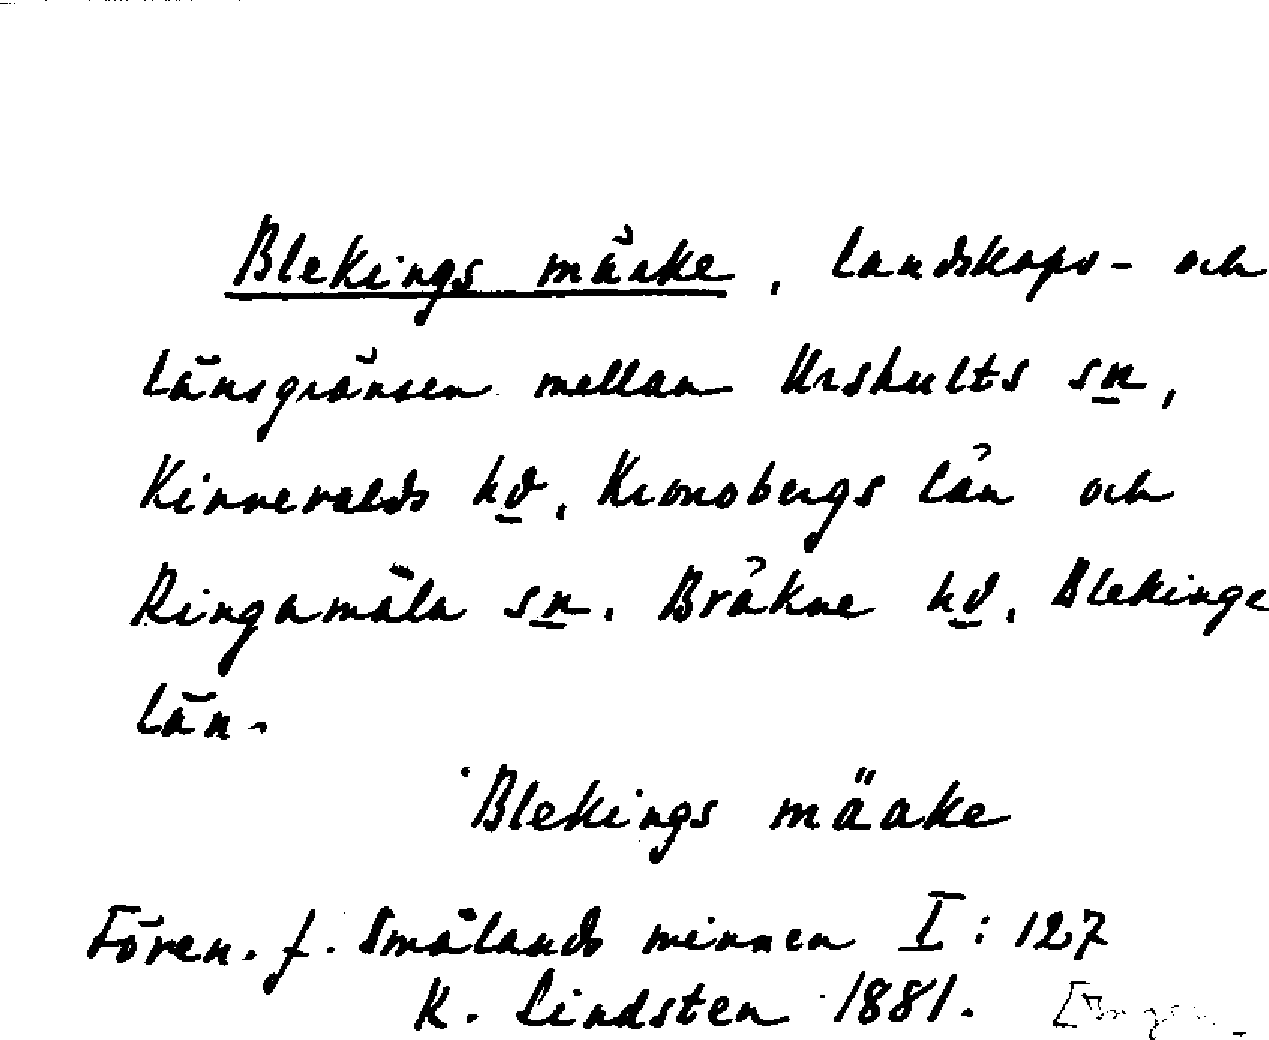 Blekings märke, landskaps- och
länsgränsen mellan Urshults sn,
Kinnevalds hd, Kronobergs län och
Ringamåla sn. Bräkne hd, Blekinge
län.
Blekings mäake
Fören. f. Smålands minnen I: 127
K. Lindsten 1881.